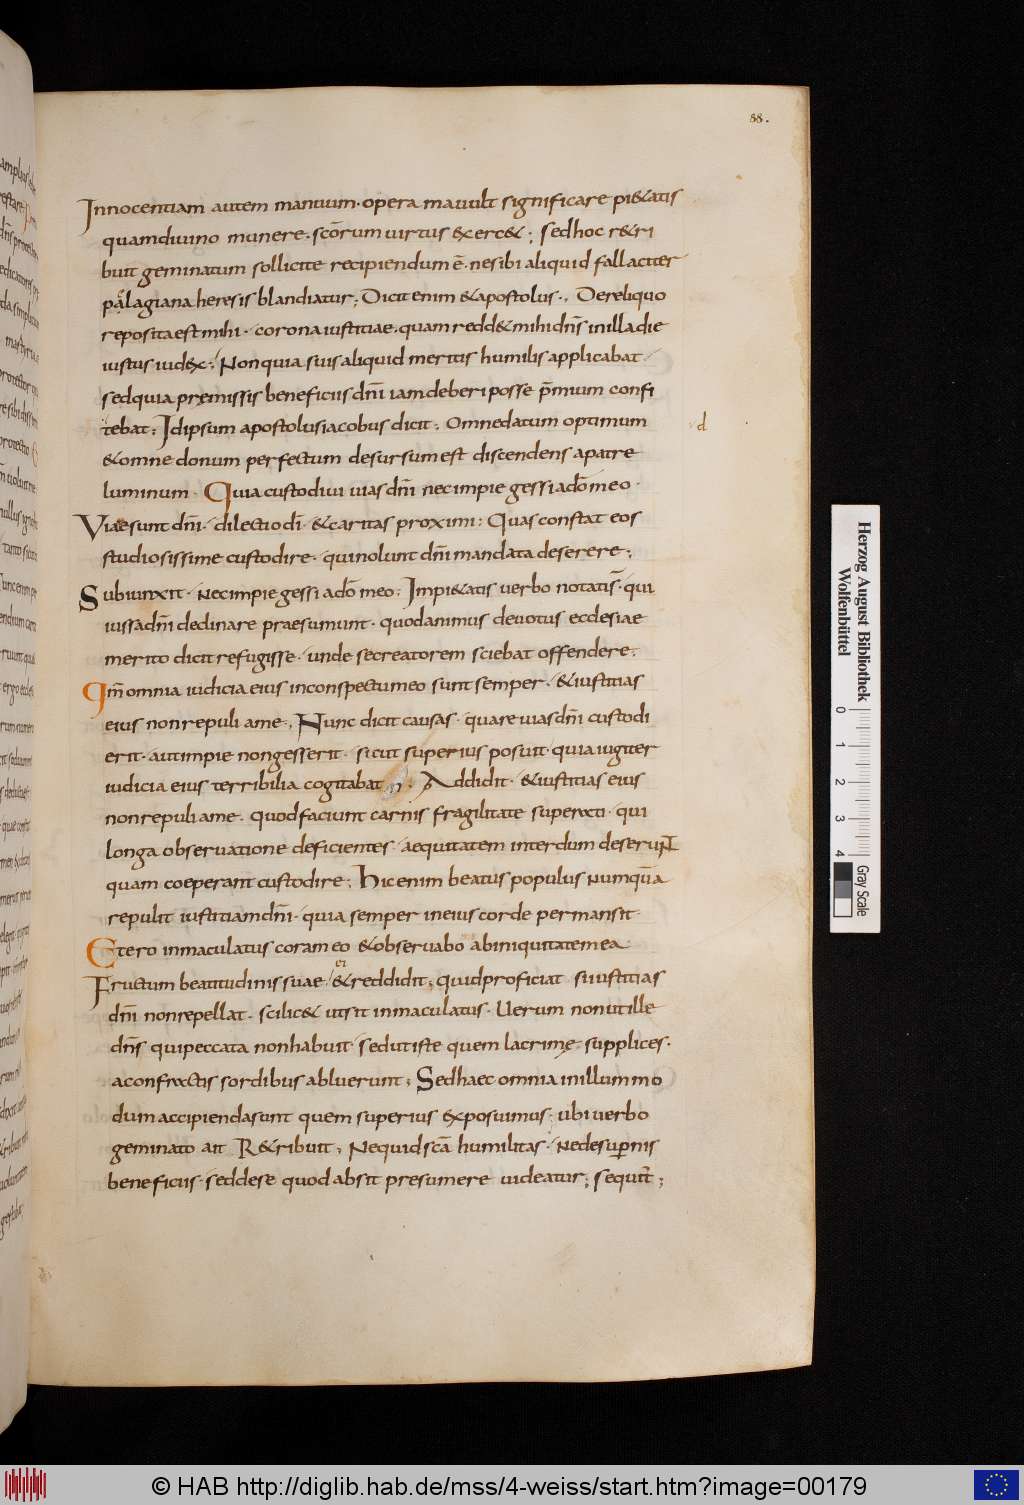 88.
Innocentiam autem manuum· opera mauult significare pi&atis
quam diuino munere· scōrum uirtus exerc&; Sed hoc r&ri
buit geminatum sollicite recipiendum ē· ne sibi aliquid fallaciter
palagiana heresis blandiatur; Dicit enim & apostolus., De reliquo
reposita est mihi· corona iustitiae· quam redd& mihi dn̄s in illa die
iustus iudex; Non quia suis aliquid meritis humilis applicabat·
sed quia pręmissis beneficiis dn̄i iam deberi posse p̄mium confi
tebat; Idipsum apostolus iacobus dicit; Omne datum optimum
d
& omne donum perfectum desursum est discendens a patre
luminum· Quia custodiui uias dn̄i nec impie gessi a dō meo·
Viae sunt dn̄i· dilectio dī· & caritas proximi; Quas constat eos
studiosissime custodire· qui nolunt dn̄i mandata deserere;
Subiunxit· nec impie gessi a dō meo; Impi&atis uerbo notatis· qui
iussa dn̄i declinare praesumunt· quod animus deuotus ecclesiae
merito dicit refugisse· unde se creatorem sciebat offendere;
Qm̄ omnia iudicia eius in conspectu meo sunt semper· & iustitias
eius non repuli a me., Nunc dicit causas· quare uias dn̄i custodi
erit· aut impie non gesserit· sicut superius posuit· quia iugiter
iudicia eius terribilia cogitabat; Addidit· & iustitias eius
non repuli a me· quod faciunt carnis fragilitate superati· qui
longa obseruatione deficientes· aequitatem interdum deserunt
quam coeperant custodire; Hic enim beatus populus numquā
repulit iustitiam dn̄i· quia semper in eius corde permansit·
Et ero inmaculatus coram eo & obseruabo ab iniquitate mea
Fructum beatitudinis suae & reddidit; quid proficiat si iustitias
ei
dn̄i non repellat· scilic& ut sit inmaculatus· Uerum non ut ille
dn̄s qui peccata non habuit· sed ut iste quem lacrimę supplices·
a confractis sordibus abluerunt; Sed haec omnia in illum mo
dum accipienda sunt quem superius exposuimus· ubi uerbo
geminato ait R&ribuit; Ne quid scā humilitas· ne de supernis
beneficiis· sed de se quod absit presumere uideatur; sequit̄;
Herzog August Bibliothek
Wolfenbüttel
0 1 2 3 4
Gray Scale
© HAB http://diglib.hab.de/mss/4-weiss/start.htm?image=00179